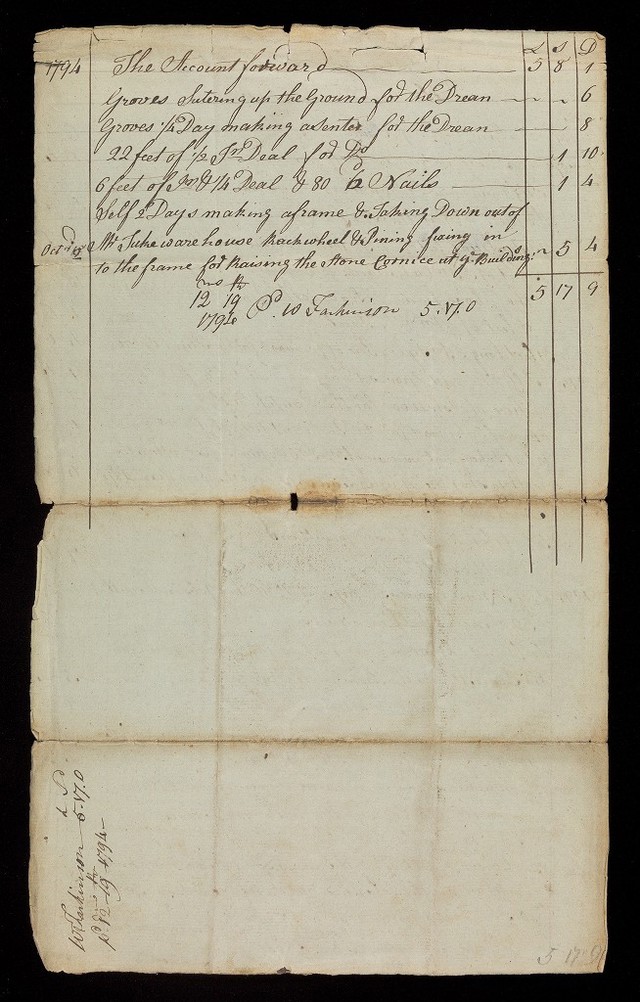 £ S D
1794 The Account forward 5 8 1
Groves Sutering up the Ground for the Drean 6
Groves ¼ Day making a Senter for the Drean 8
22 feet of ½ In Deal for Do 1 10
6 feet of In & ¼ Deal & 80 Nails 1 4
Self 2 Days making a frame & Taking Down out of
Octr Mr Tuke ware house Rackwheel & Pining fixing in
to the frame for Raising the Stone Cornice at ye Buildings 5 4
5 17 9
mo
12 19 Pd. W Farkinson 5.17.0
1794
W Farkinson 5.17.0
12 19 1794
5 17 9